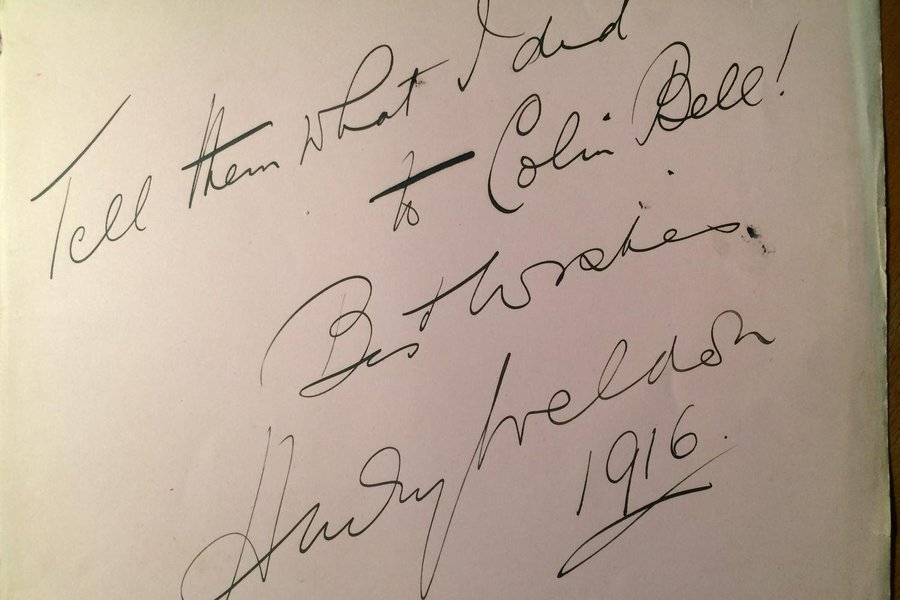 Tell them what I did
to Colin Bell!
Best Wishes
Harry Weldon
1916.